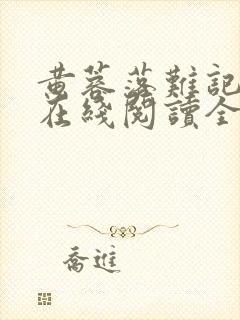 黄蓉落難記
在綫閱讀全
喬進